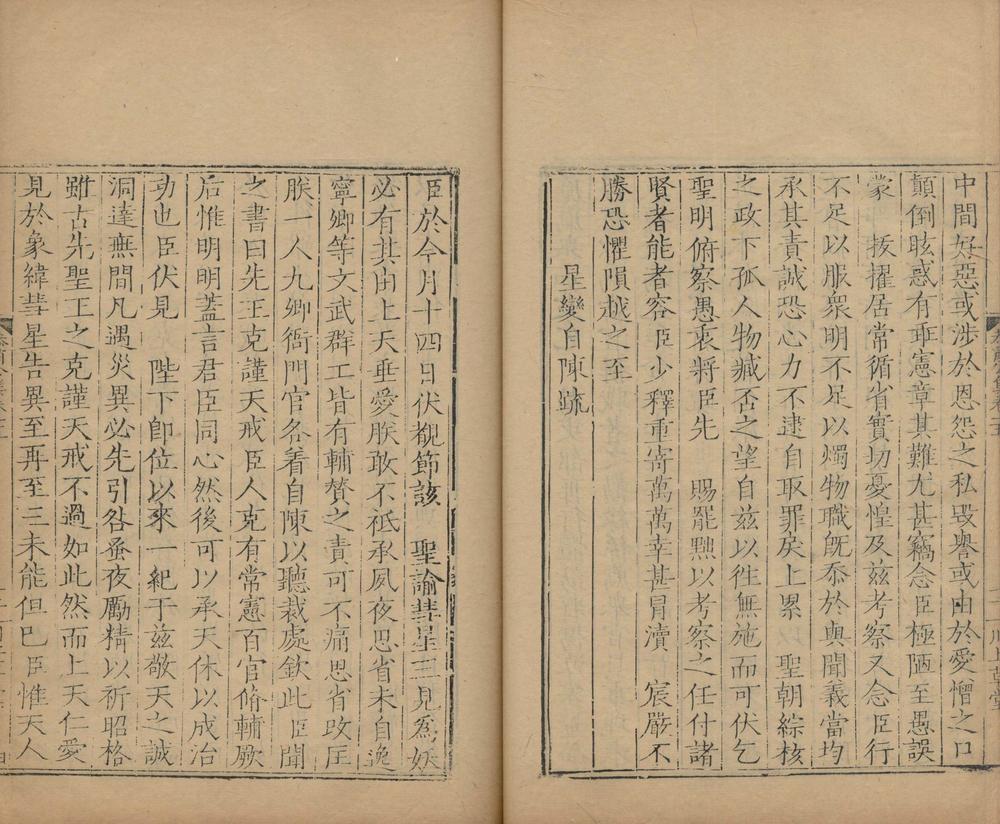 中間好惡或涉於恩怨之私毀譽或由於愛憎之口
顛倒眩惑有乖憲章其難尤甚竊念臣極陋至愚誤
蒙　拔擢居常循省實切憂惶及茲考察又念臣行
不足以服衆明不足以燭物職旣忝於與聞義當均
承其責誠恐心力不逮自取罪戾上累　聖朝綜核
之政下孤人物臧否之望自茲以徃無施而可伏乞
聖明俯察愚衷將臣先　賜罷黜以考察之任付諸
賢者能者容臣少釋重寄萬萬幸甚冒瀆　宸嚴不
勝恐懼隕越之至
星變自陳疏
臣於今月十四日伏覩節該　聖諭彗星三見爲妖
必有其由上天垂愛朕敢不祗承夙夜思省未自逸
寧卿等文武群工皆有輔賛之責可不痛思省攺匡
朕一人九卿衙門官各着自陳以聽裁處欽此臣聞
之書曰先王克謹天戒臣人克有常憲百官脩輔厥
后惟明明蓋言君臣同心然後可以承天休以成治
功也臣伏見　陛下卽位以來一紀于茲敬天之誠
洞達無間凡遇災異必先引咎蚤夜勵精以祈昭格
雖古先聖王之克謹天戒不過如此然而上天仁愛
見於象緯彗星告異至再至三未能但已臣惟天人